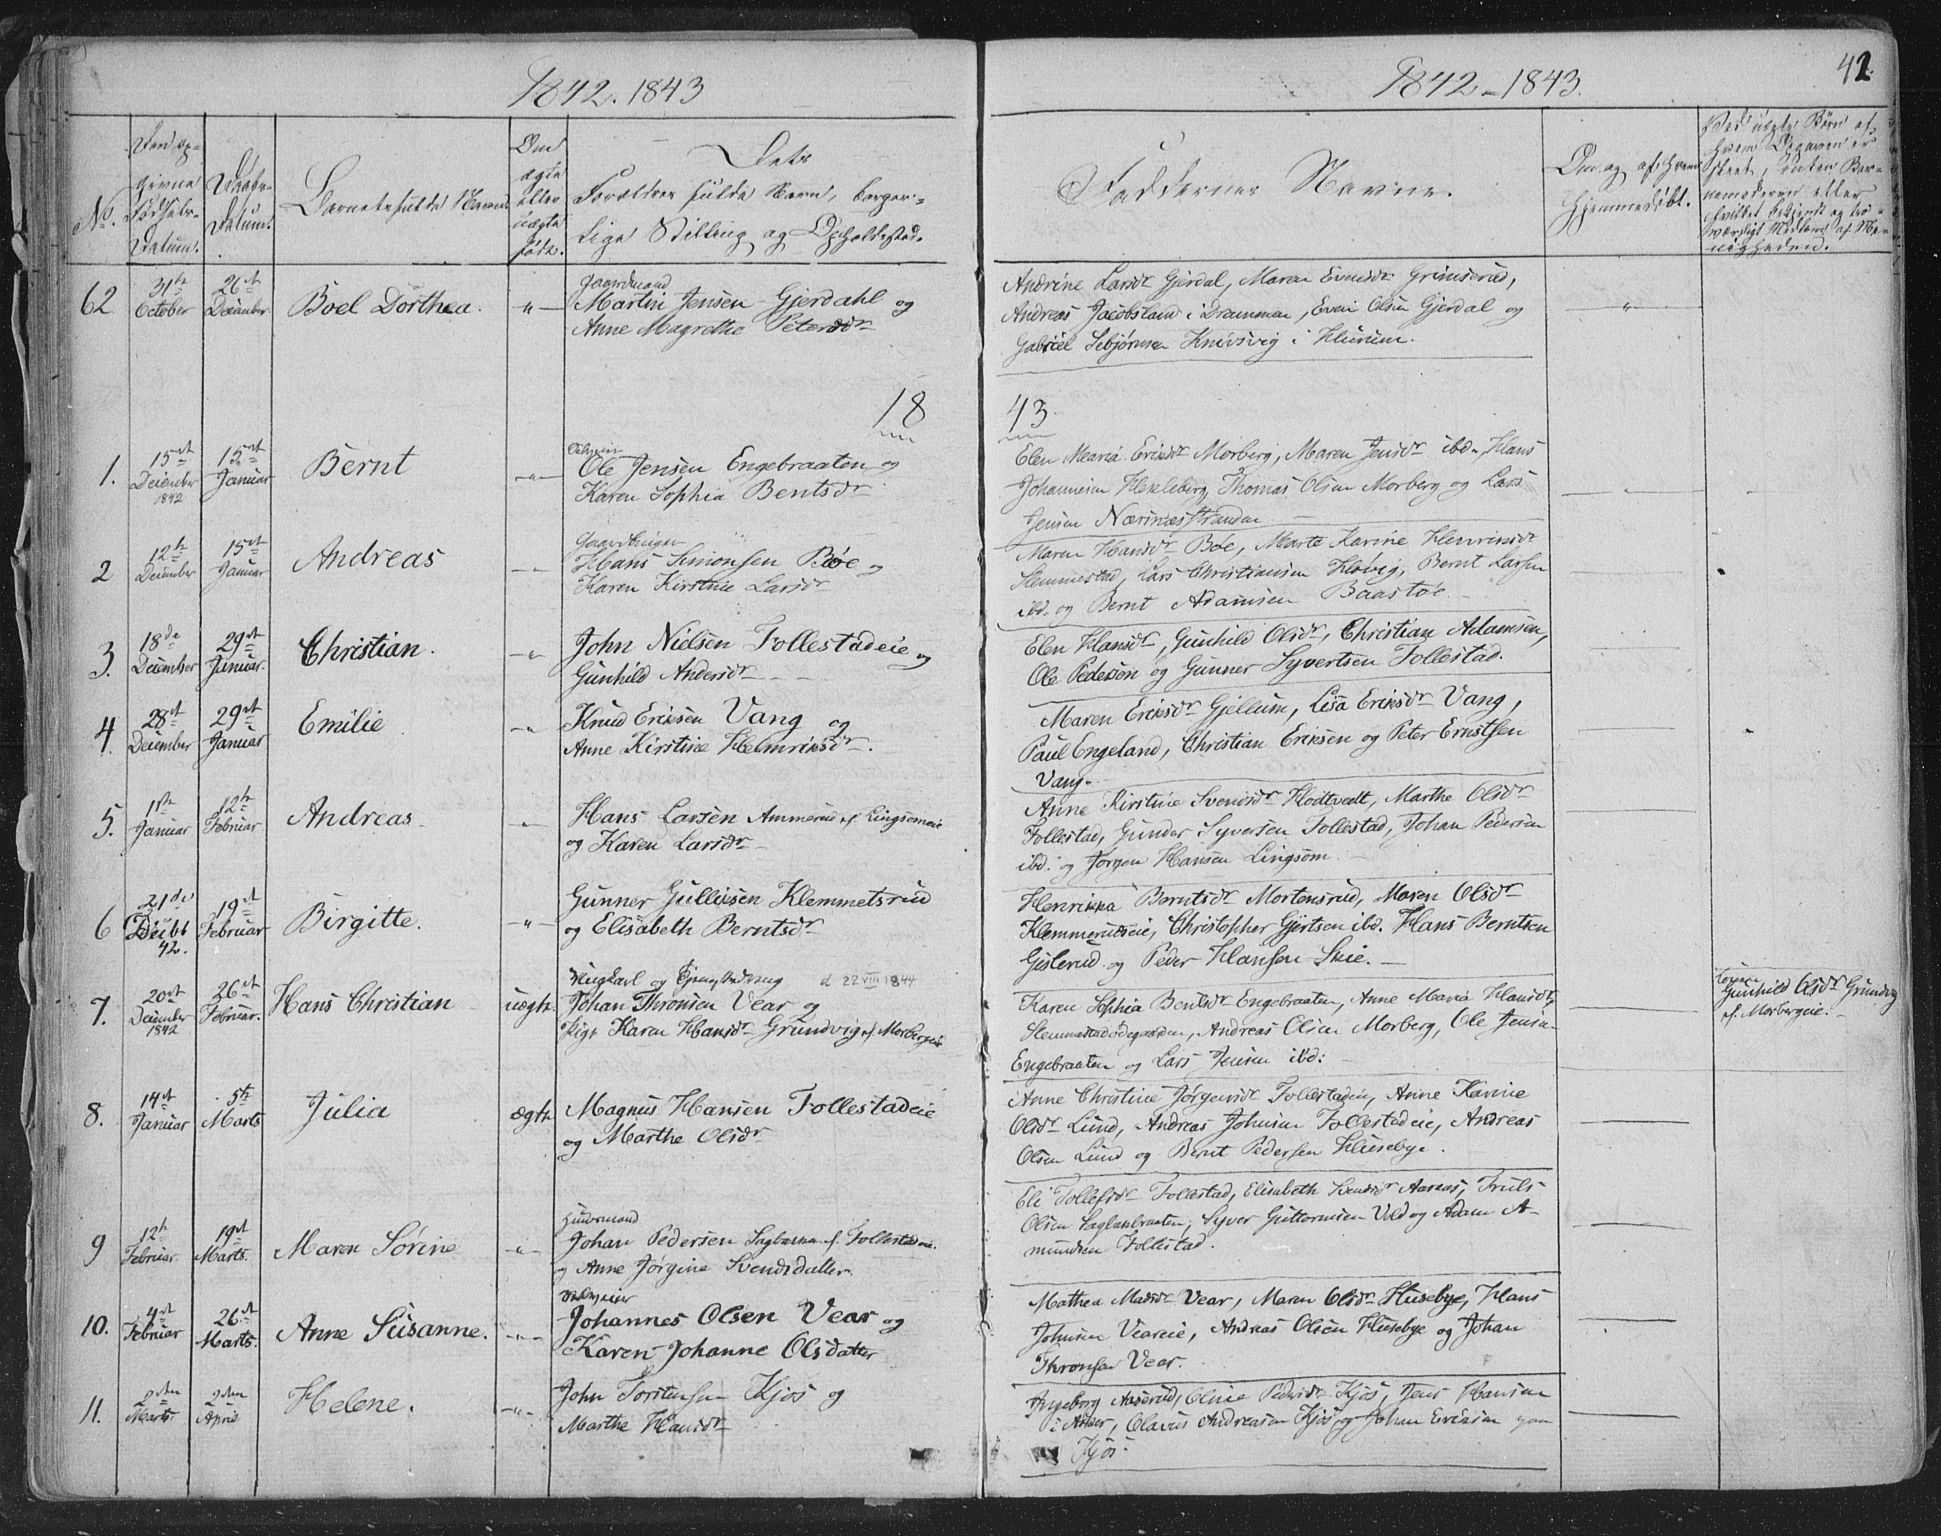 1842. 1843
1842-1843.
42.
No.
Den op-
givne
Fødsels-
Datum.
Daabs-
Datum.
Barnets fulde Navn
Om
ægte
eller
uægte
født.
Dets
Forældres fulde Navn, borger-
lige Stilling og Opholdssted.
Faddernes Navne.
Om og af hvem
hjemmedøbt.
Ved uægte Børn af
hvem Opgaven er
skeet, enten Bar-
nemoderen eller
hvilket bekjendt og tro-
værdigt Medlem af Me-
nigheden.
62
31te
October
26de
December
Boel Dorthea.
"
Gaardmand
Martin Jensen Gjerdahl og
Anne Magrethe Petersdr
Andrine Larsdr Gjerdal, Maren Evensdr Grimsrud,
Andreas Jacobsland i Drammen, Even Olsen Gjerdal og
Gabriel Sebjørnsen Knivsvig i Hurum.
18
43.
1.
15de
December
1842
15de
Januar
Bernt
"
Ole Jensen Engebraaten og
Karen Sophia Bentsdr
Elen Maria Eriksdr Morberg, Maren Jensdr ibd., Hans
Johannesen Hekleberg, Thomas Olsen Morberg og Lars
Jensen Nærsnæsstranden
2
12te
December
15de
Januar
Andreas
"
Gaardbruger
Hans Simonsen Bøe og
Karen Kirstine Larsdr
Maren Hansdr Bøe, Marte Karine Henriksdr
Slemmestad, Lars Christiansen Høvig, Bernt Larsen
ibd. og Bernt Adamsen Baastøe.
3.
18de
December
29de
Januar.
Christian.
"
John Nielsen Follestadeie og
Gunhild Andersdr
Elen Hansdr, Gunhild Olsdr, Christian Adamsen,
Ole Pedersen og Gunner Syvertsen Follestad.
4.
28de
December
29de
Januar
Emilie
"
Knud Eriksen Vang og
Anne Kirstine Helmriksdr.
Maren Eriksdr Gjellum, Lisa Eriksdr Vang,
Paul Engeland, Christian Eriksen og Peter Ernstsen
Vang.
5.
1ste
Januar
12te
Februar
Andreas
"
Hans Larsen Ammerud af Lingsomeie
og Karen Larsdr
Anne Kirstine Svendsdr Hodtvedt, Marthe Olsdr
Follestad, Gunder Syversen Follestad, Johan Pedersen
ibd. og Jørgen Hansen Lingsom.
6
21de
Decbr
42.
19de
Februar
Birgitte.
"
Gunner Gulliksen Klemmetsrud
og Elisabeth Berntsdr
Henrikka Berntsdr Mortensrud, Maren Olsdr
Klemmerudseie, Christopher Gjertsen ibd. Hans Berntsen
Gislerud og Peder Hansen Skie.
7.
20de
December
1842
26de
Februar.
Hans Christian
uægte
Ungkarl og
d 22 VIII 1844
Johan Thronsen Vear og
Pige Karen Hansdr Grundvig af Morbergeie
Karen Sophia Bentsdr Engebraaten, Anne Maria Hansdr
Slemmestadødegaarden, Andreas Olsen Morberg, Ole Jensen
Engebraaten og Lars Jensen ibd:
Gunhild Olsdr Grundvig
af Morbergeie.
8.
14de
Januar
5te
Marts
Julia
ægte
Magnus Hansen Follestadeie
og Marthe Olsdr
Anne Christine Jørgensdr Follestadeie, Anne Karine
Olsdr Lund, Andreas Johnsen Follestadeie, Andreas
Olsen Lund og Bernt Pedersen Husebye.
9
12te
Februar
19de
Marts.
Maren Sørine
"
Huusmand
Johan Pedersen Sagbakken af Follestadeie.
og Anne Jørgine Svendsdatter
Eli Tollefsdr Follestad, Elisabeth Svendsdr Aaraas, Truls
Olsen Saglasbraaten, Syver Guttormsen Ueld og Adam A-
mundsen Follestad.
10.
4de
Februar
26de
Marts.
Anne Susanne.
"
Johannes Olsen Vear og
Karen Johanne Olsdatter
Mathea Madsdr Vear, Maren Olsdr Husebye, Hans
Johnsen Veareie, Andreas Olsen Husebye og Johan
Thronsen Vear.
11.
2den
Marts.
2den
April
Helene.
"
John Torstensen Kjos og
Marthe Hansdr
Ingeborg Aaserud, Oline Pedersdr Kjos, Jens Hansen
i Asker, Olavus Andreasen Kjos og Johan Eriksen
Kjos.